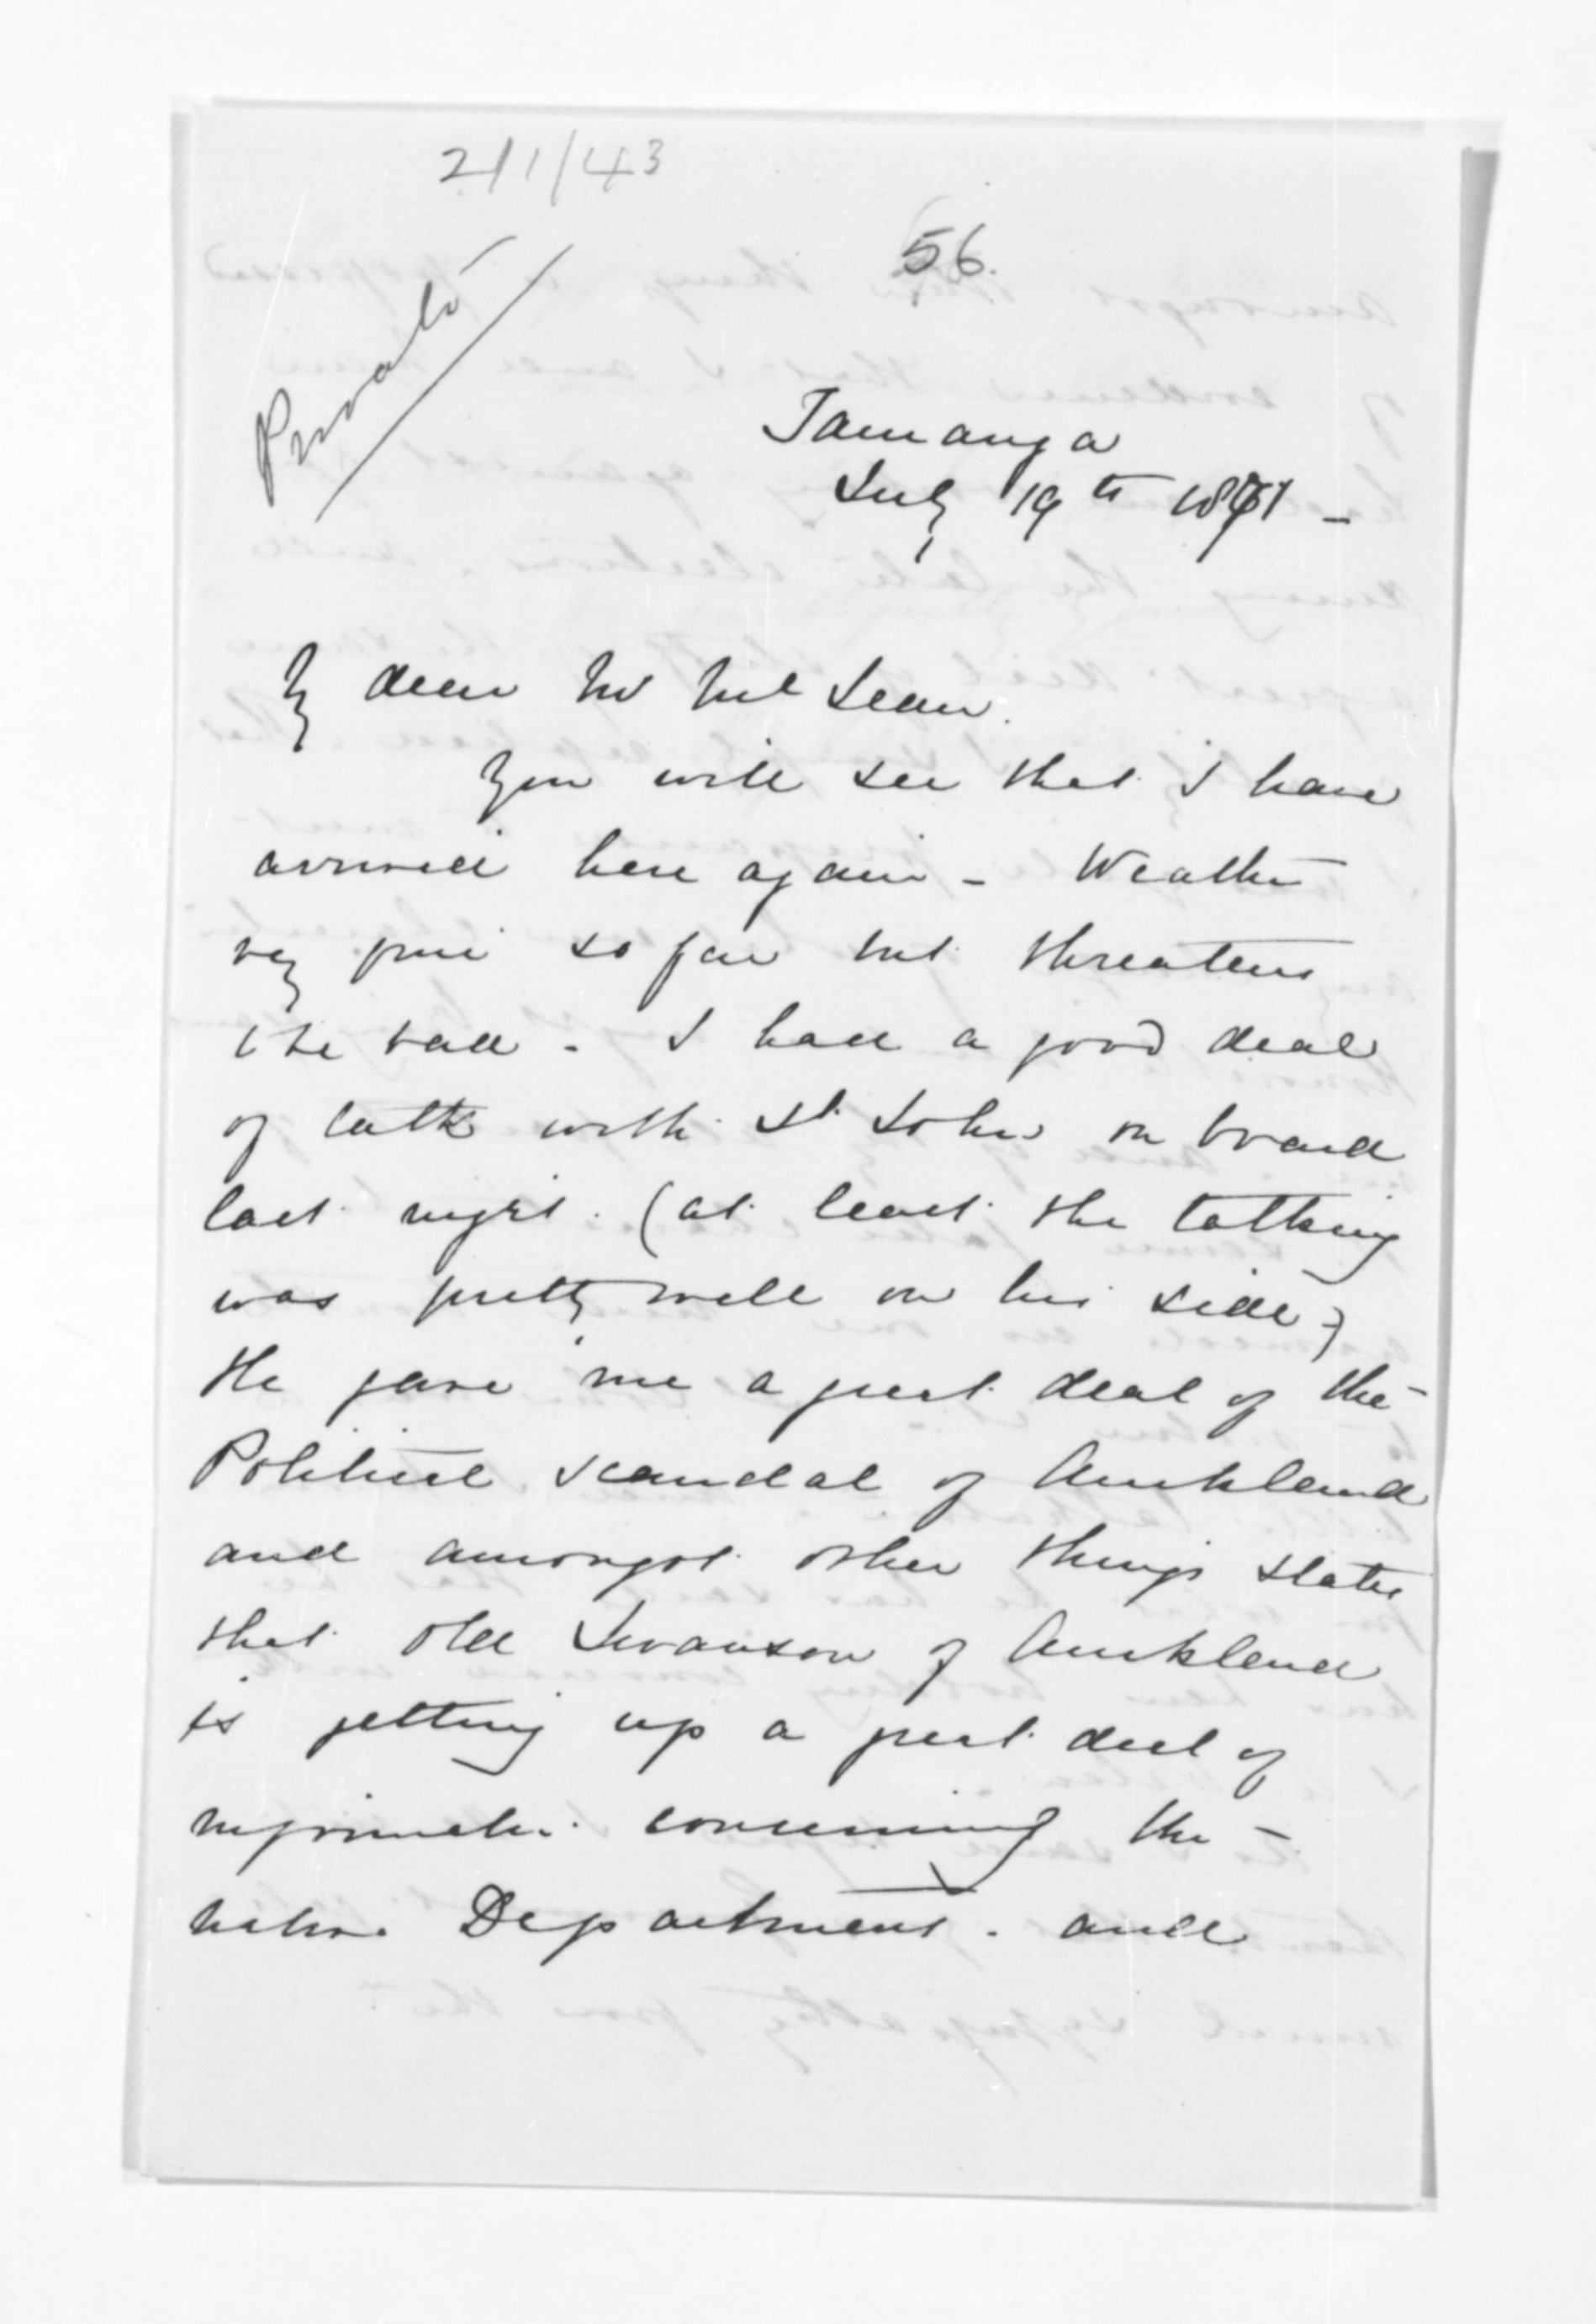 2/1/43
56.
Private
Tauranga
July 19th 1871 -
My dear Mr McLean.
You will see that I have
arrived here again - Weather
very fine so far but threatens
to be bad - I had a good deal
of talk with St John on board
last night. (at least the talking
was pretty well on his side)
He gave me a great deal of the
Political scandal of Auckland
and amongst other things states
that old Swanson of Auckland
is getting up a great deal of
information concerning the
native Department. and